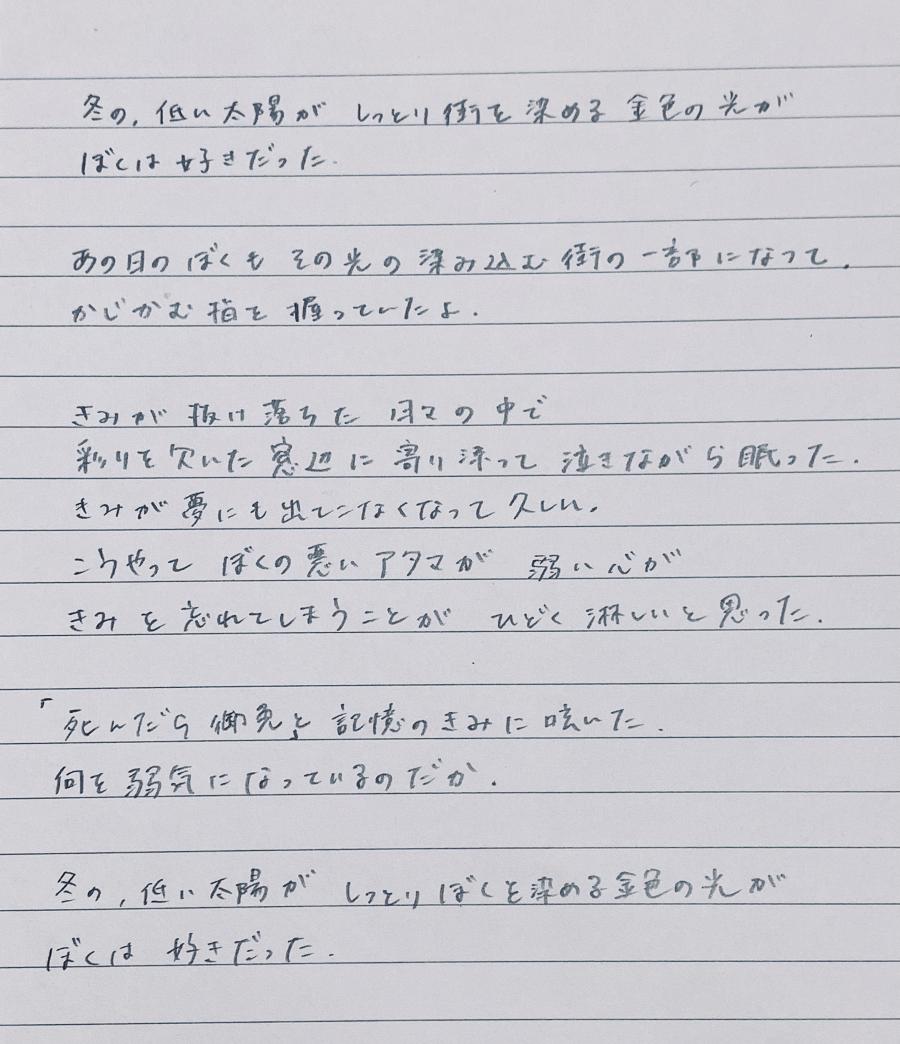 冬の、低い太陽が しっとり街を染める金色の光が
ぼくは好きだった.
あの日のぼくも その光の染み込む街の一部になって、
かじかむ指を握っていたよ.
きみが抜け落ちた日々の中で
彩りを欠いた窓辺に寄り添って 泣きながら眠った.
きみが夢にも出てこなくなって久しい。
こうやって ぼくの悪いアタマが 弱い心が
きみを忘れてしまうことが ひどく淋しいと思った.
「死んだら御免」と記憶のきみに呟いた.
何を弱気になっているのだか.
冬の、低い太陽が しっとりぼくを染める金色の光が
ぼくは 好きだった.